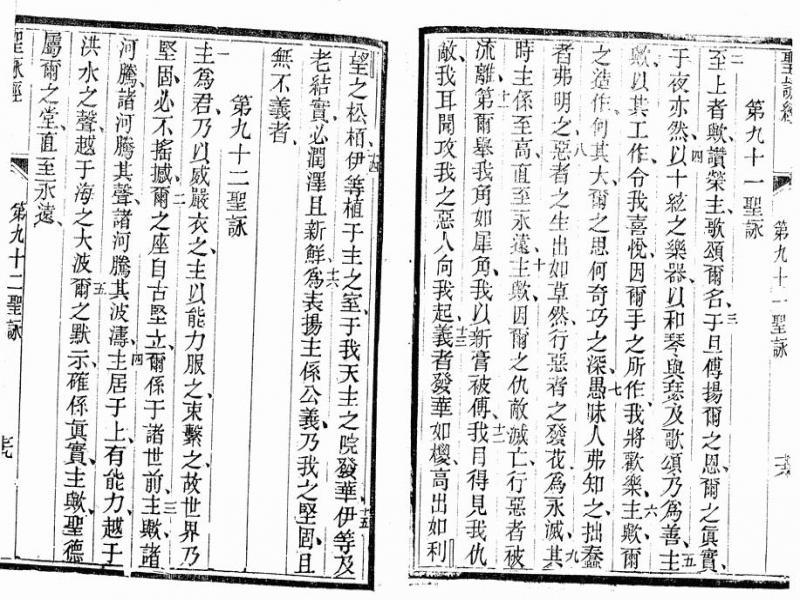 聖詠經 第九十一聖詠
第九十一聖詠
二至上者歟、讚榮主、歌頌爾名、三于旦傅揚爾之恩、爾之眞實、
于夜亦然、四以十絃之樂器、以和琴與瑟、及歌頌、乃爲善、五主
歟、以其工作令我喜悅、因爾手之所作、我將歡樂、六主歟、爾
之造作、何其大、爾之思何奇巧之深、七愚昧人弗知之、拙蠢
者弗明之、八惡者之生出如草然、行惡者之發花爲永滅、其九
時主係至高、直至永遠、十主歟、因爾之仇敵滅亡、行惡者被
流離、十一第爾舉我角如犀角、我以新膏被傅、十二我目得見我仇
敵、我耳聞攻我之惡人、向我起、十三義者發華如椶、高出如利
望之松栢、十四伊等植于主之室、于我天主之院發華、十五伊等及
老結實、必潤澤且新鮮、十六爲表揚主係公義、乃我之堅固、且
無不義者、
第九十二聖詠
一主爲君、乃以威嚴衣之、主以能力服之、束繫之、故世界乃
堅固、必不搖撼、二爾之座自古堅立、爾係于諸世前、三主歟、諸
河騰、諸河騰其聲、諸河騰其波濤、四主居于上、有能力、越于
洪水之聲、越于海之大波、五爾之默示、確係眞實、主歟、聖德
屬爾之堂、直至永遠、
聖詠經 第九十二聖詠